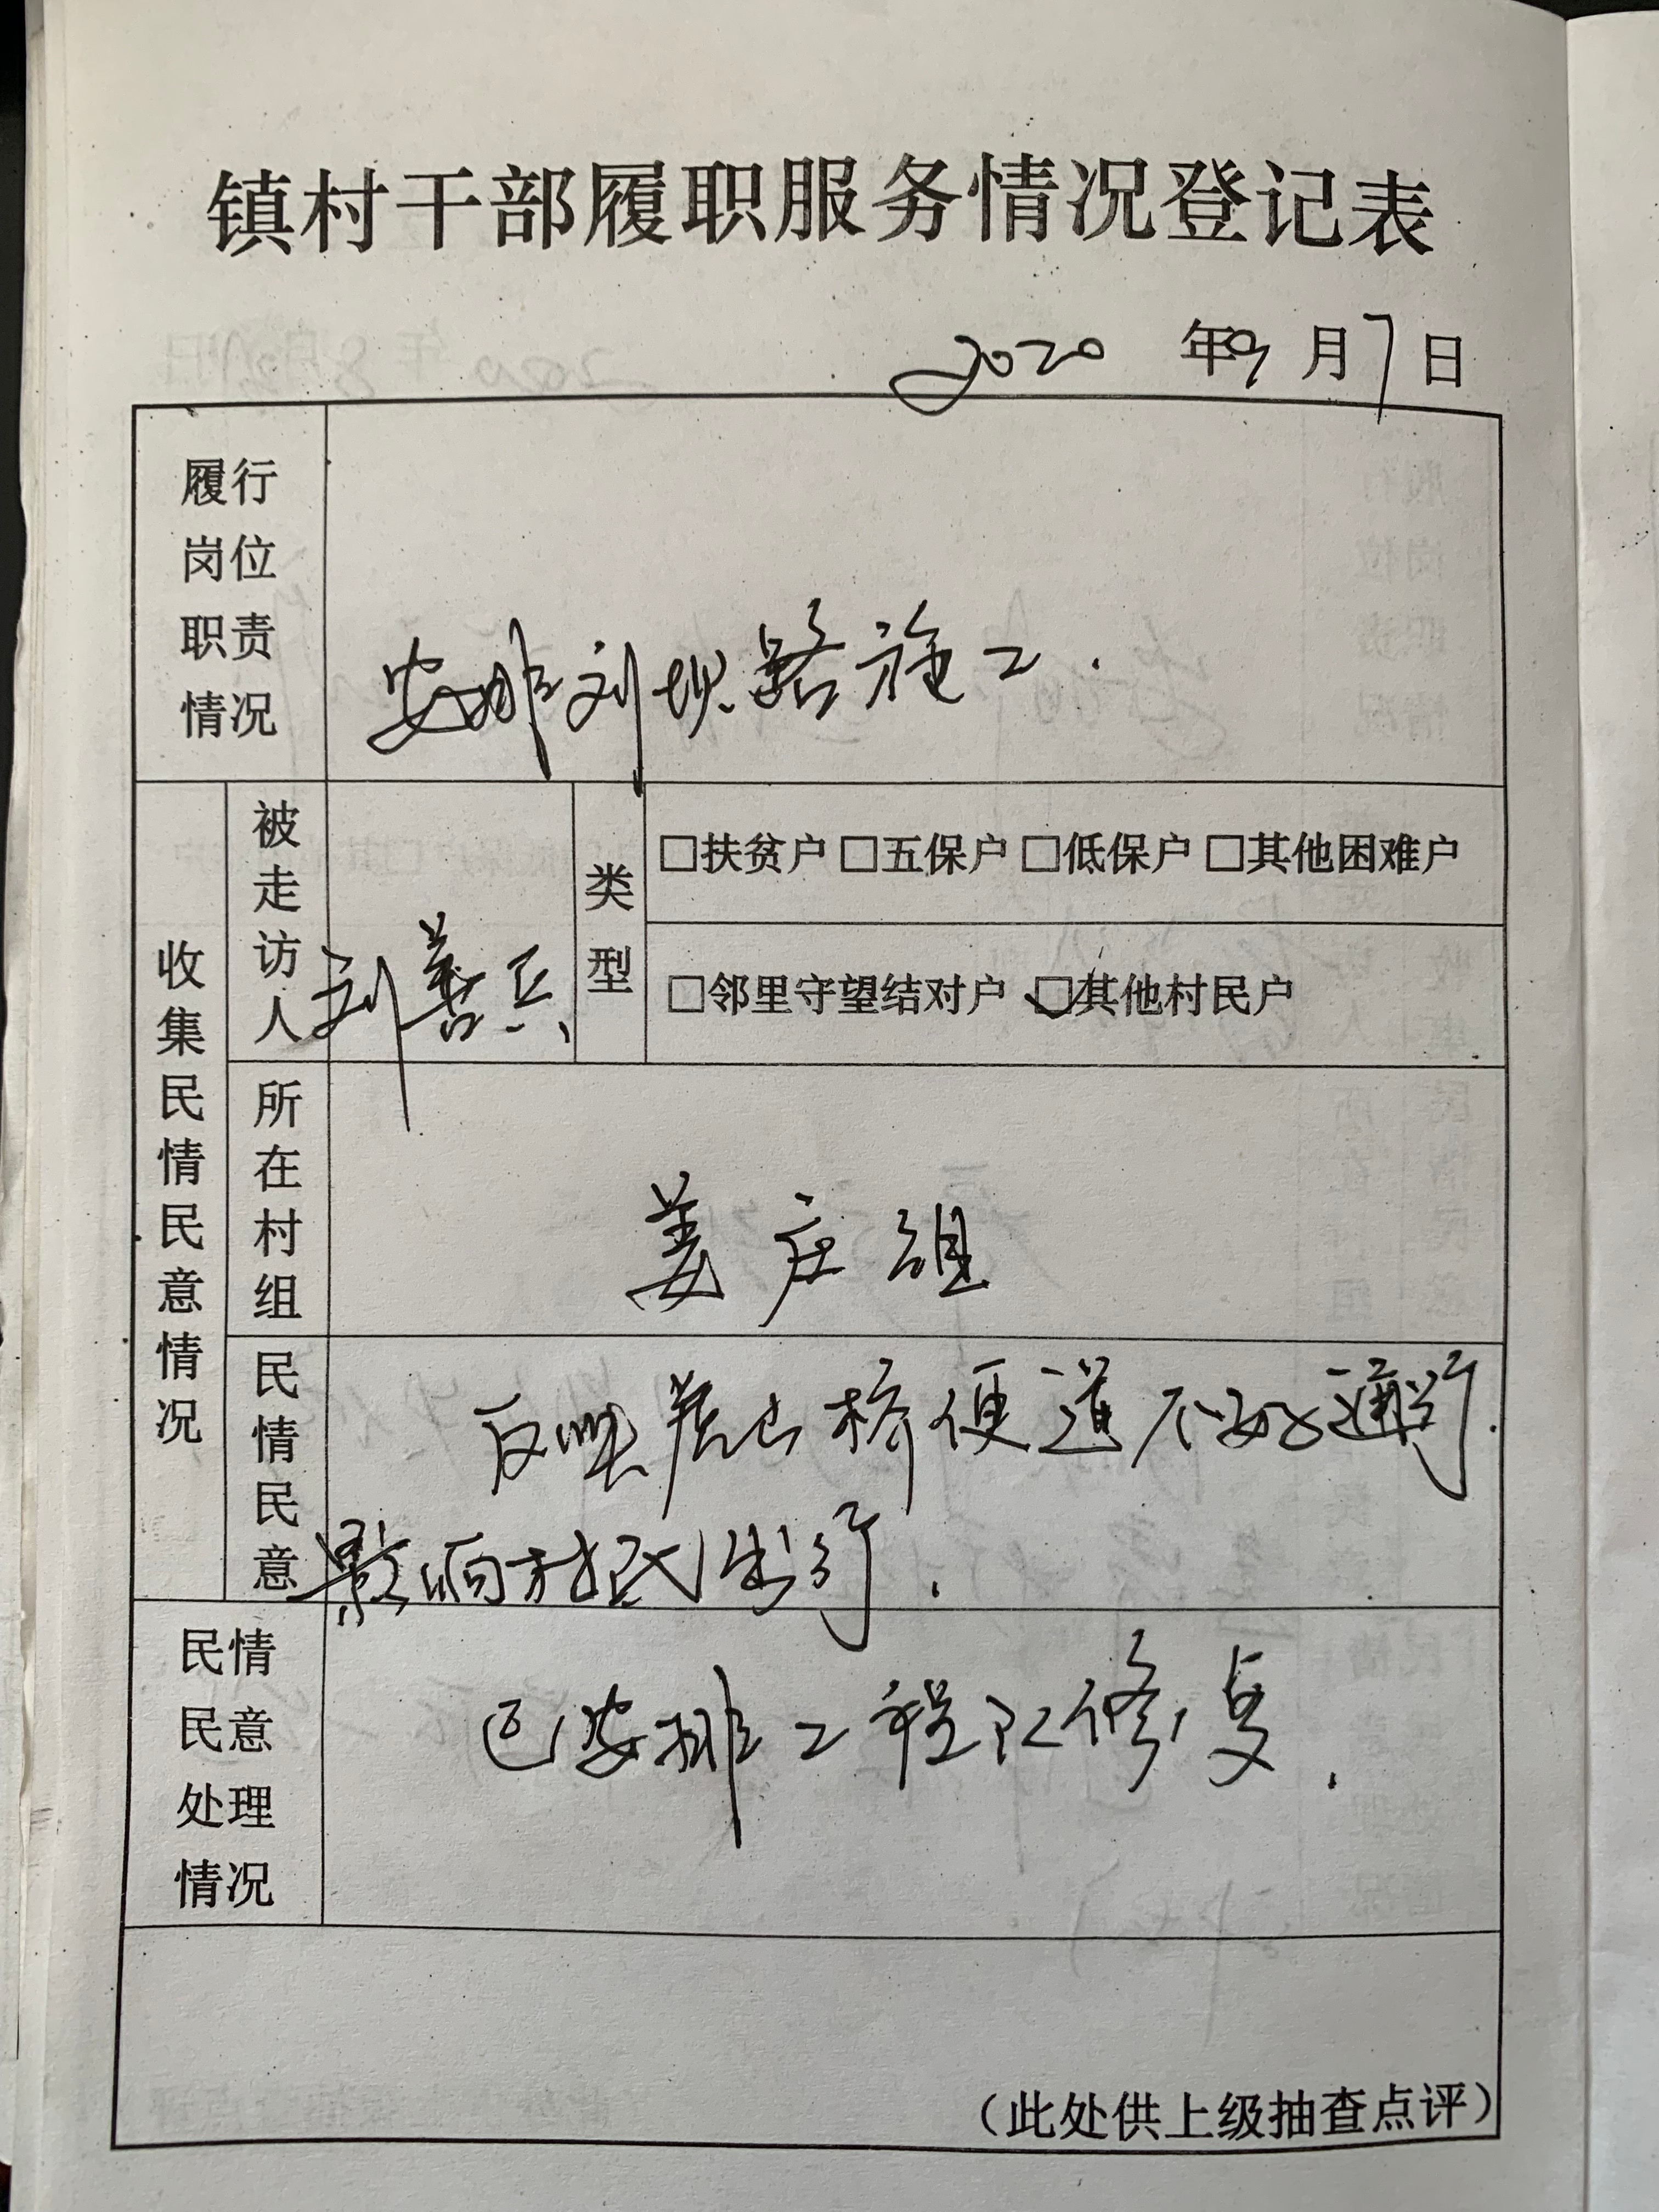 镇村干部履职服务情况登记表
2020 年 9 月 7 日
履行岗位职责情况
安排刘坝路施工.
收集民情民意情况
被走访人
刘善兵
类型
□扶贫户 □五保户 □低保户 □其他困难户
□邻里守望结对户 ☑其他村民户
所在村组
姜庄组
民情民意
反映 桥便道不好通行.
影响村民出行.
民情民意处理情况
已安排工程队修复.
(此处供上级抽查点评)